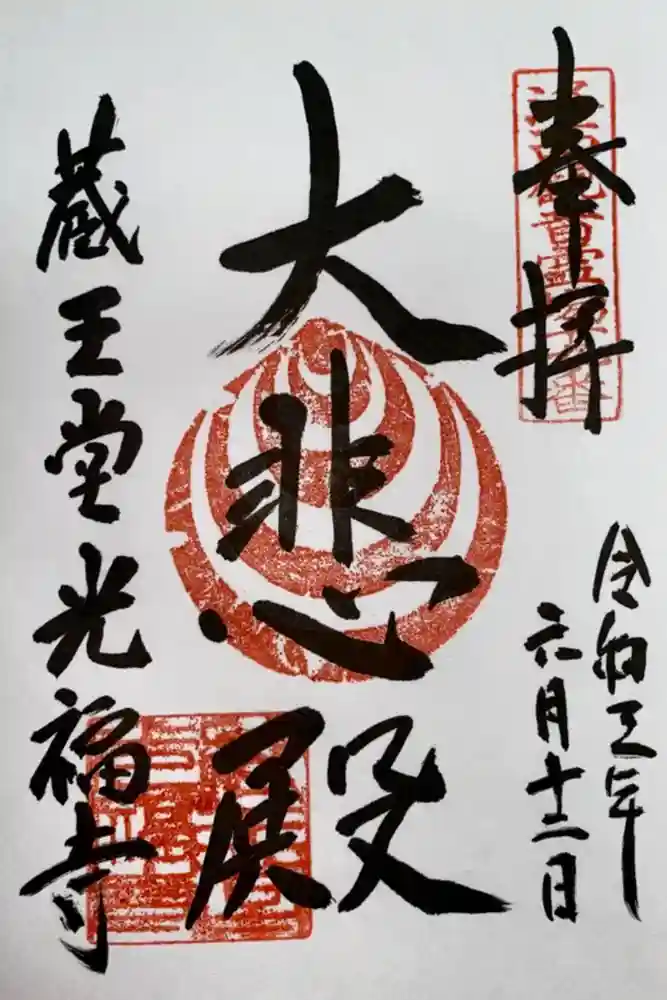 奉拝
大悲殿
蔵王堂光福寺
令和三年
六月十二日